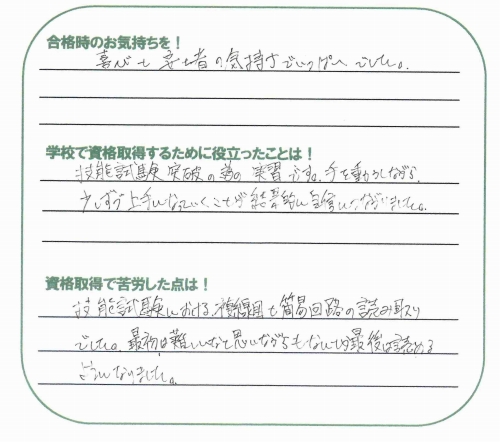 合格時のお気持ちを!
喜びと安堵の気持ちでいっぱいでした。
学校で資格取得するために役立ったことは!
技能試験突破の為の実習です。手を動かしながら、
少しずつ上手くなっていくことが結果的に自信につながりました。
資格取得で苦労した点は!
技能試験における、複線図と簡易回路の読み取り
でした。最初は難しいなと思いながらも 最後は読める
ようになりました。